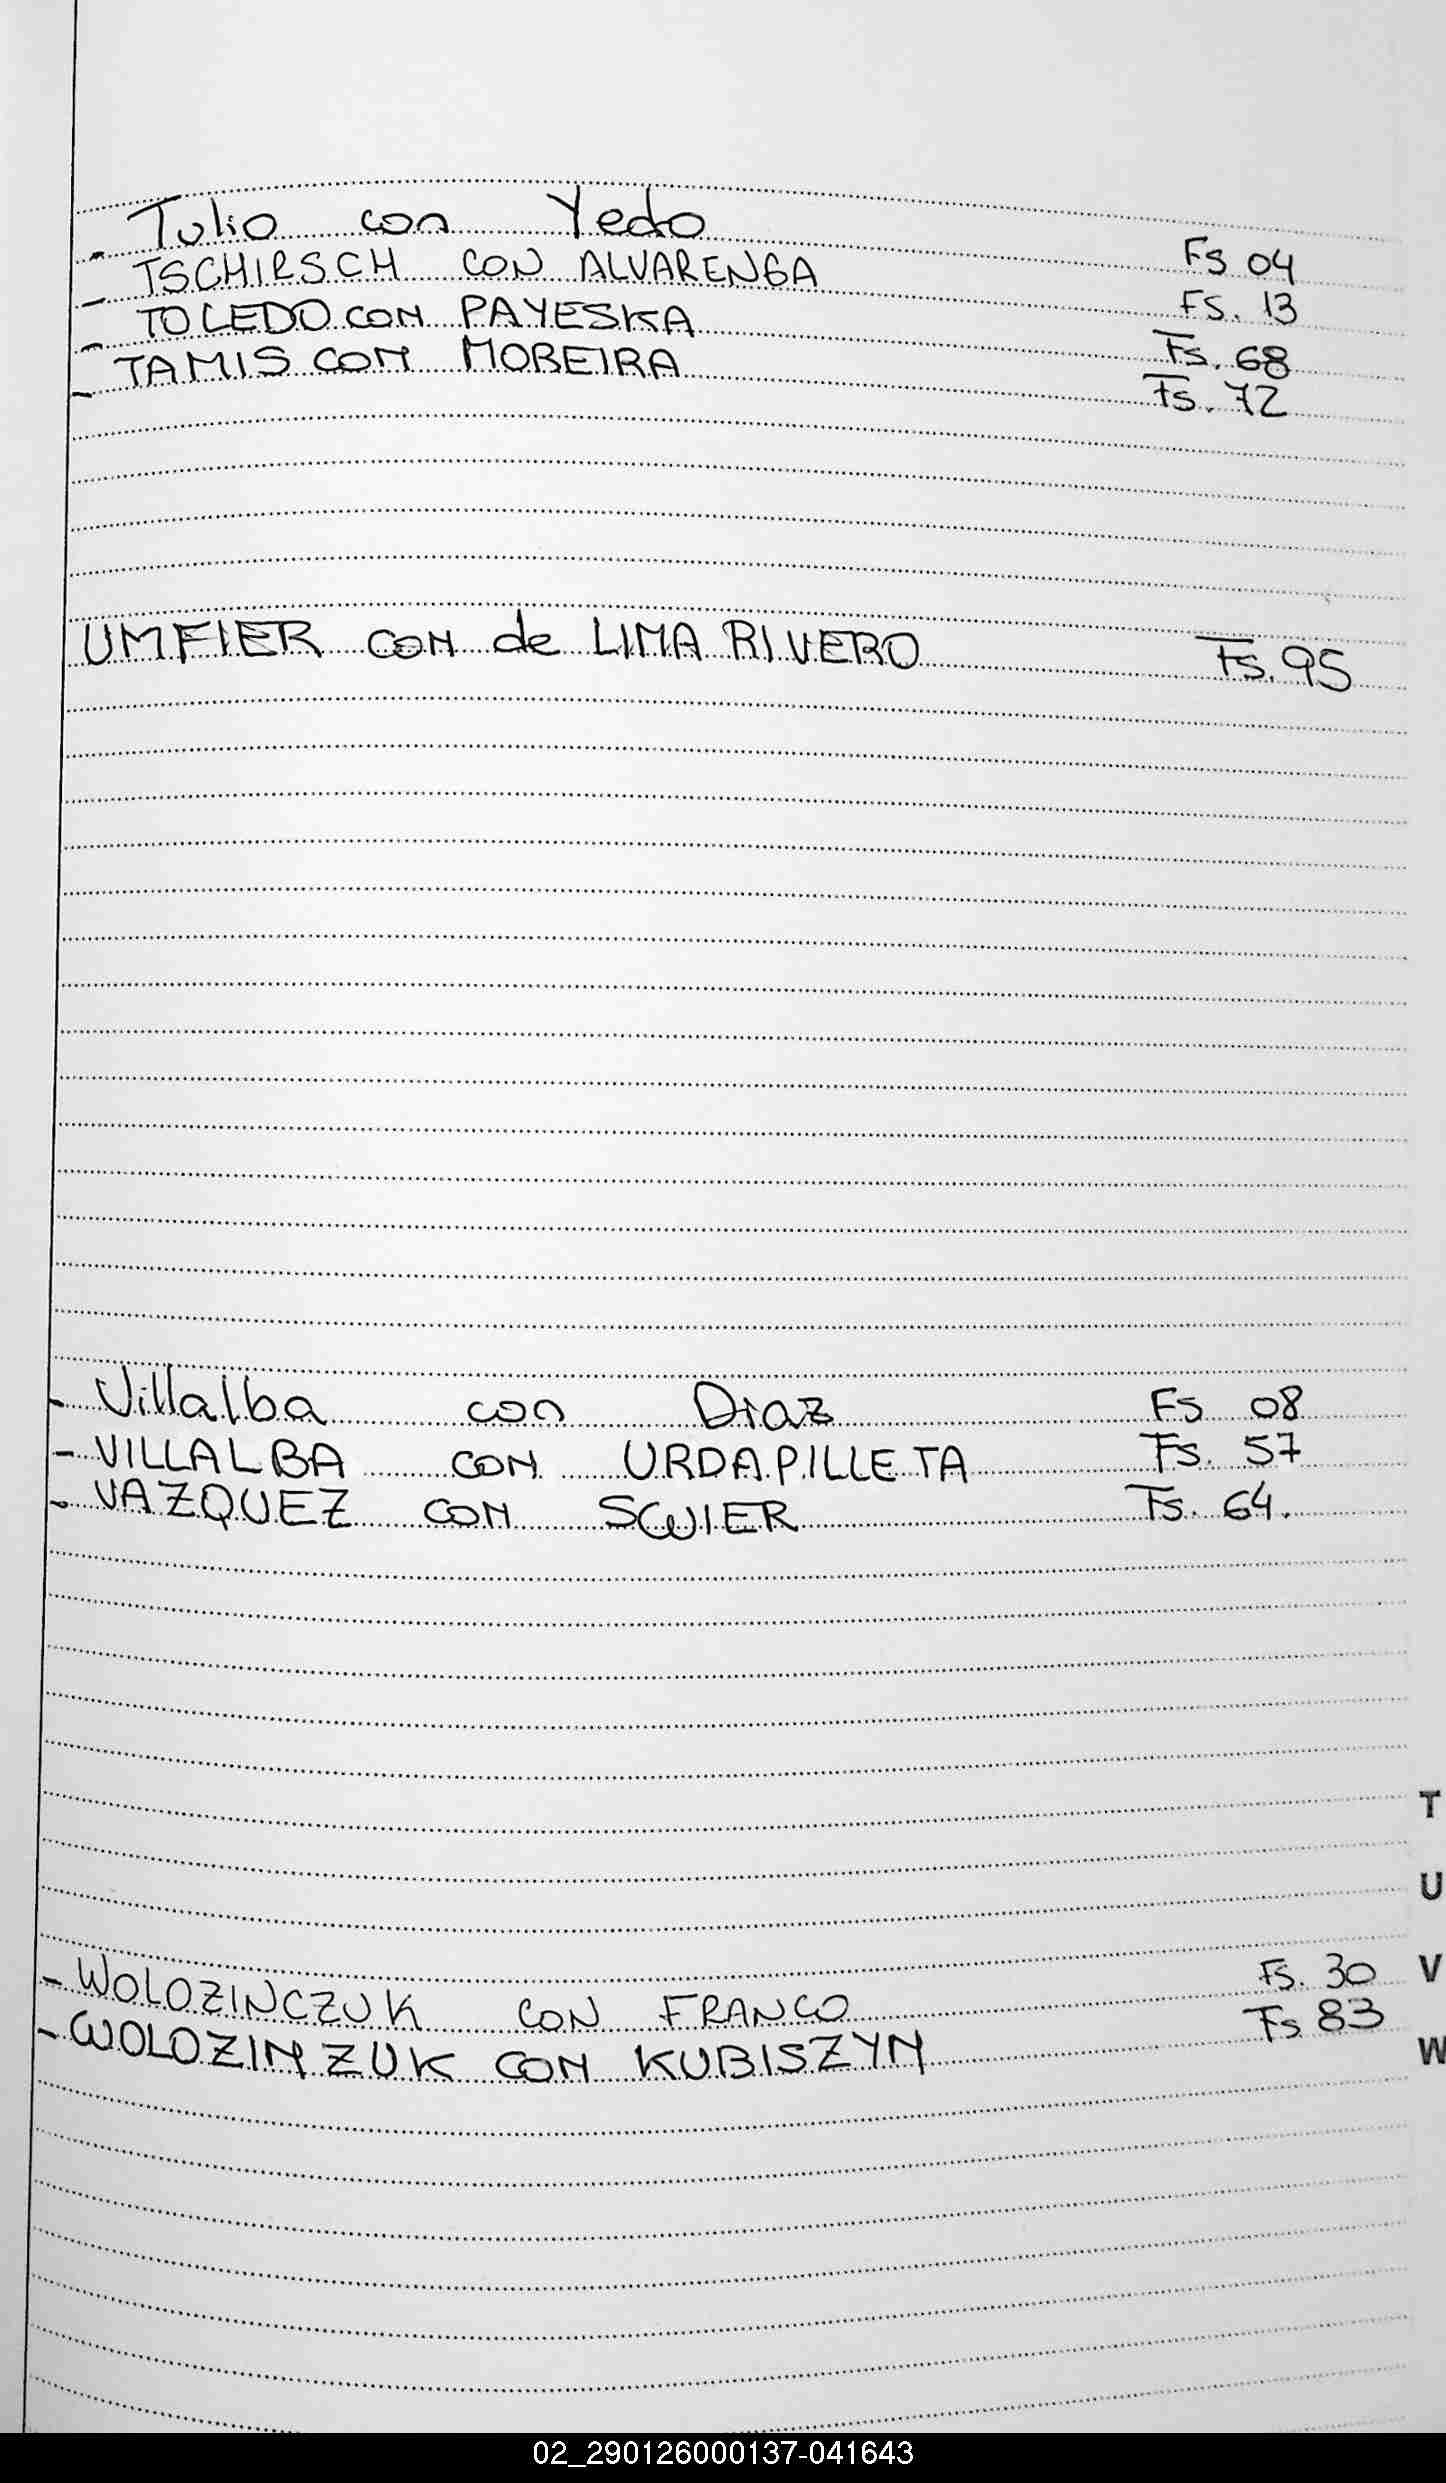 - Tulio con Yedo Fs 04
- TSCHIRSCH CON ALVARENGA FS. 13
- TOLEDO CON PAYESKA Fs. 68
- TAMIS CON MOREIRA Fs. 72
UMFIER CON de LIMA RIVERO Fs. 95
- Villalba con Diaz FS 08
- VILLALBA CON URDAPILLETA Fs. 57
- VAZQUEZ CON SWIER Fs. 64.
T
U
- WOLOZINCZUK CON FRANCO Fs. 30
V
- WOLOZINZUK CON KUBISZYN Fs 83
W
02_290126000137-041643